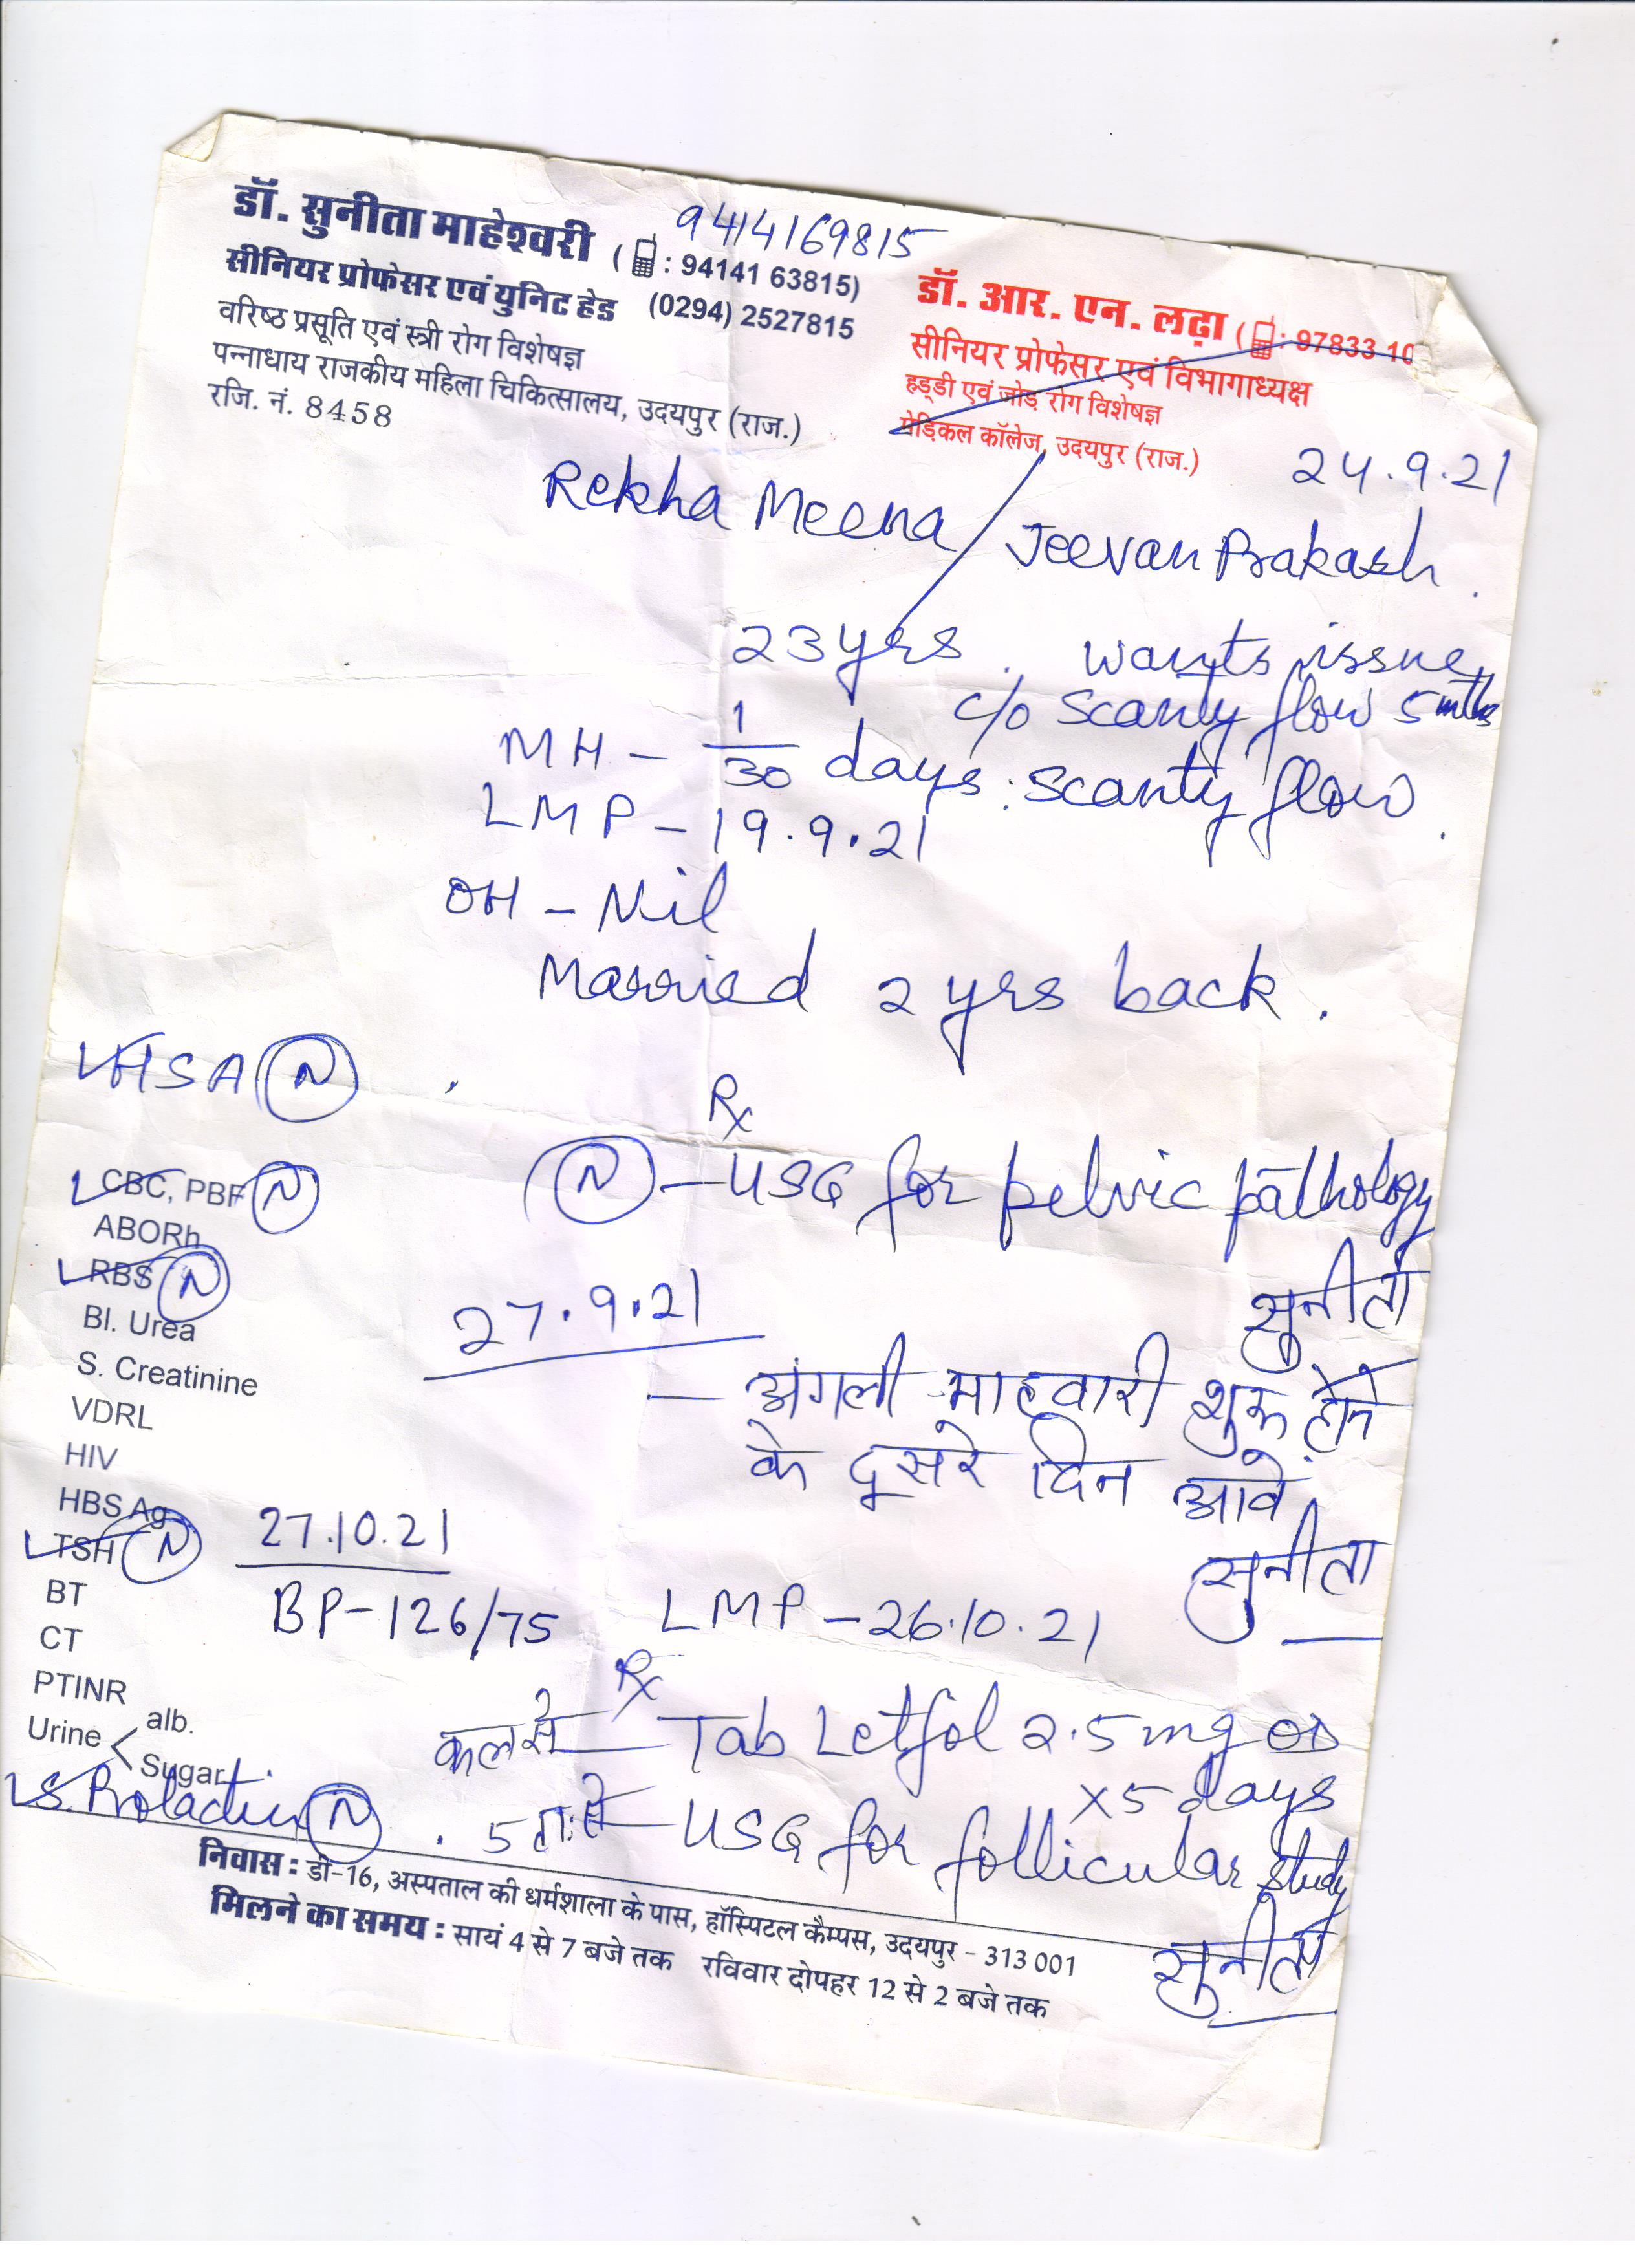 डॉ. सुनीता माहेश्वरी
9414169815
( : 94141 63815)
सीनियर प्रोफेसर एवं युनिट हेड (0294) 2527815
वरिष्ठ प्रसूति एवं स्त्री रोग विशेषज्ञ
पन्नाधाय राजकीय महिला चिकित्सालय, उदयपुर (राज.)
रजि. नं. 8458
डॉ. आर. एन. लढ़ा ( : 97833 10
सीनियर प्रोफेसर एवं विभागाध्यक्ष
हड्डी एवं जोड़ रोग विशेषज्ञ
मेडिकल कॉलेज, उदयपुर (राज.)
24.9.21
Rekha Meena / Jeevan Prakash.
23 yrs. wants issue
c/o scanty flow 5 mths
MH - 1/30 days : scanty flow.
LMP - 19.9.21
OH - Nil
Married 2 yrs back.
HSA N
Rx
N - USG for pelvic pathology
सुनीता
CBC, PBF N
ABORh
RBS N
Bl. Urea
S. Creatinine
VDRL
HIV
HBS Ag
TSH N
BT
CT
PTINR
Urine < alb.
Sugar
S. Prolactin N
27.9.21
- अगली माहवारी शुरू होने
के दूसरे दिन आवे
सुनीता
27.10.21
BP-126/75 LMP - 26.10.21
Rx
कल से - Tab Letfol 2.5 mg OD
x 5 days
5 ता: से - USG for follicular study
सुनीता
निवास : डी-16, अस्पताल की धर्मशाला के पास, हॉस्पिटल कैम्पस, उदयपुर - 313 001
मिलने का समय : सायं 4 से 7 बजे तक रविवार दोपहर 12 से 2 बजे तक